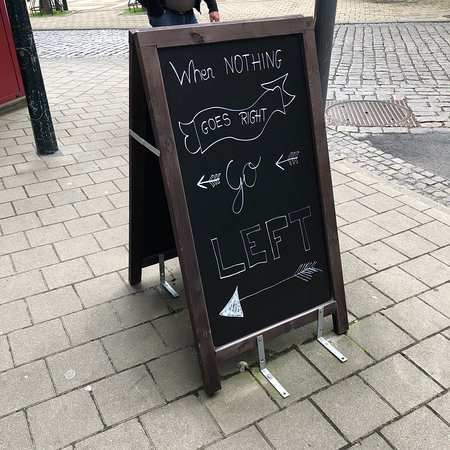 When NOTHING
GOES RIGHT
Go
LEFT